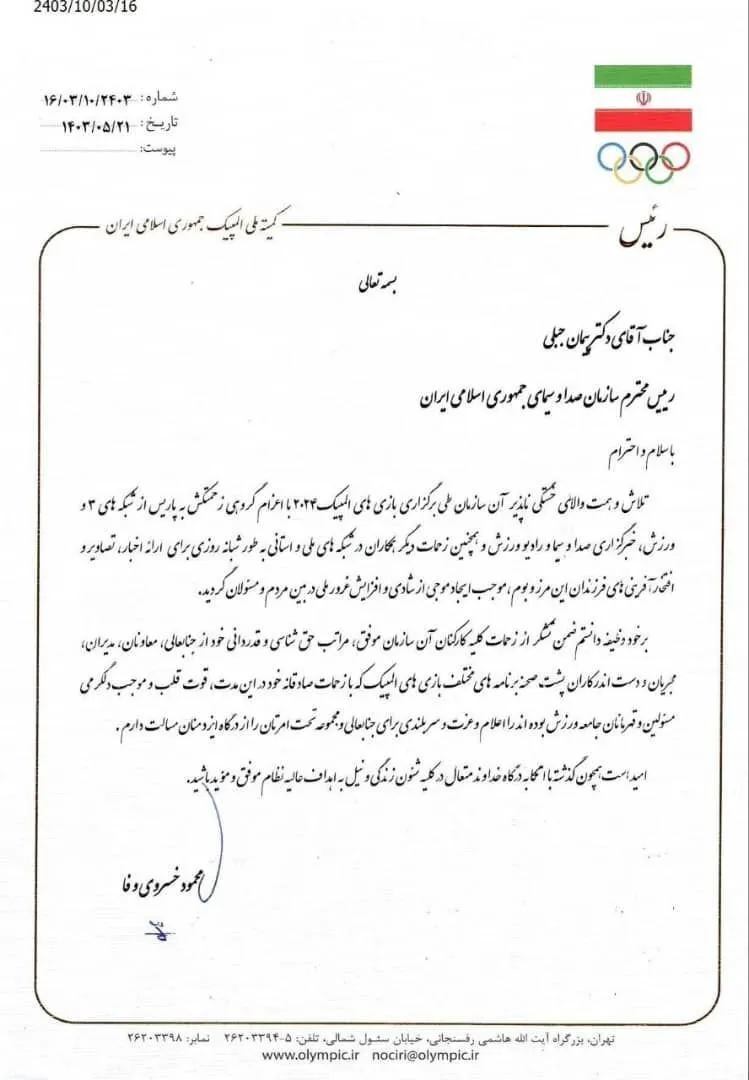 2403/10/03/16
شماره: ۱۶/۰۳/۱۰/۲۴۰۳
تاریخ: ۱۴۰۳/۰۵/۲۱
پیوست:
رئیس
کمیته ملی المپیک جمهوری اسلامی ایران
بسمه تعالی
جناب آقای دکتر پیمان جبلی
رییس محترم سازمان صدا و سیمای جمهوری اسلامی ایران
با سلام و احترام
تلاش و همت والای خستگی ناپذیر آن سازمان طی برگزاری بازی های المپیک ۲۰۲۴ با اعزام گروهی زحمتکش به پاریس از شبکه های ۳ و
ورزش، خبرگزاری صدا و سیما و رادیو ورزش و همچنین زحمات دیگر همکاران در شبکه های ملی و استانی به طور شبانه روزی برای ارائه اخبار، تصاویر و
افتخارآفرینی های فرزندان این مرز و بوم، موجب ایجاد موجی از شادی و افزایش غرور ملی در بین مردم و مسئولان گردید.
برخود وظیفه دانستم ضمن تشکر از زحمات کلیه کارکنان آن سازمان موفق، مراتب حق شناسی و قدردانی خود از جنابعالی، معاونان، مدیران،
مجریان و دست اندرکاران پشت صحنه برنامه های مختلف بازی های المپیک که با زحمات صادقانه خود در این مدت، قوت قلب و موجب دلگرمی
مسئولین و قهرمانان جامعه ورزش بوده اند را اعلام و عزت و سربلندی برای جنابعالی و مجموعه تحت امرتان را از درگاه ایزد منان مسالت دارم.
امید است همچون گذشته با اتکا به درگاه خداوند متعال در کلیه شئون زندگی و نیل به اهداف عالیه نظام موفق و مؤید باشید.
محمود خسروی وفا
تهران، بزرگراه آیت الله هاشمی رفسنجانی، خیابان سئول شمالی، تلفن: ۵-۲۶۲۰۳۳۹۴ نمابر: ۲۶۲۰۳۳۹۸
www.olympic.ir nociri@olympic.ir